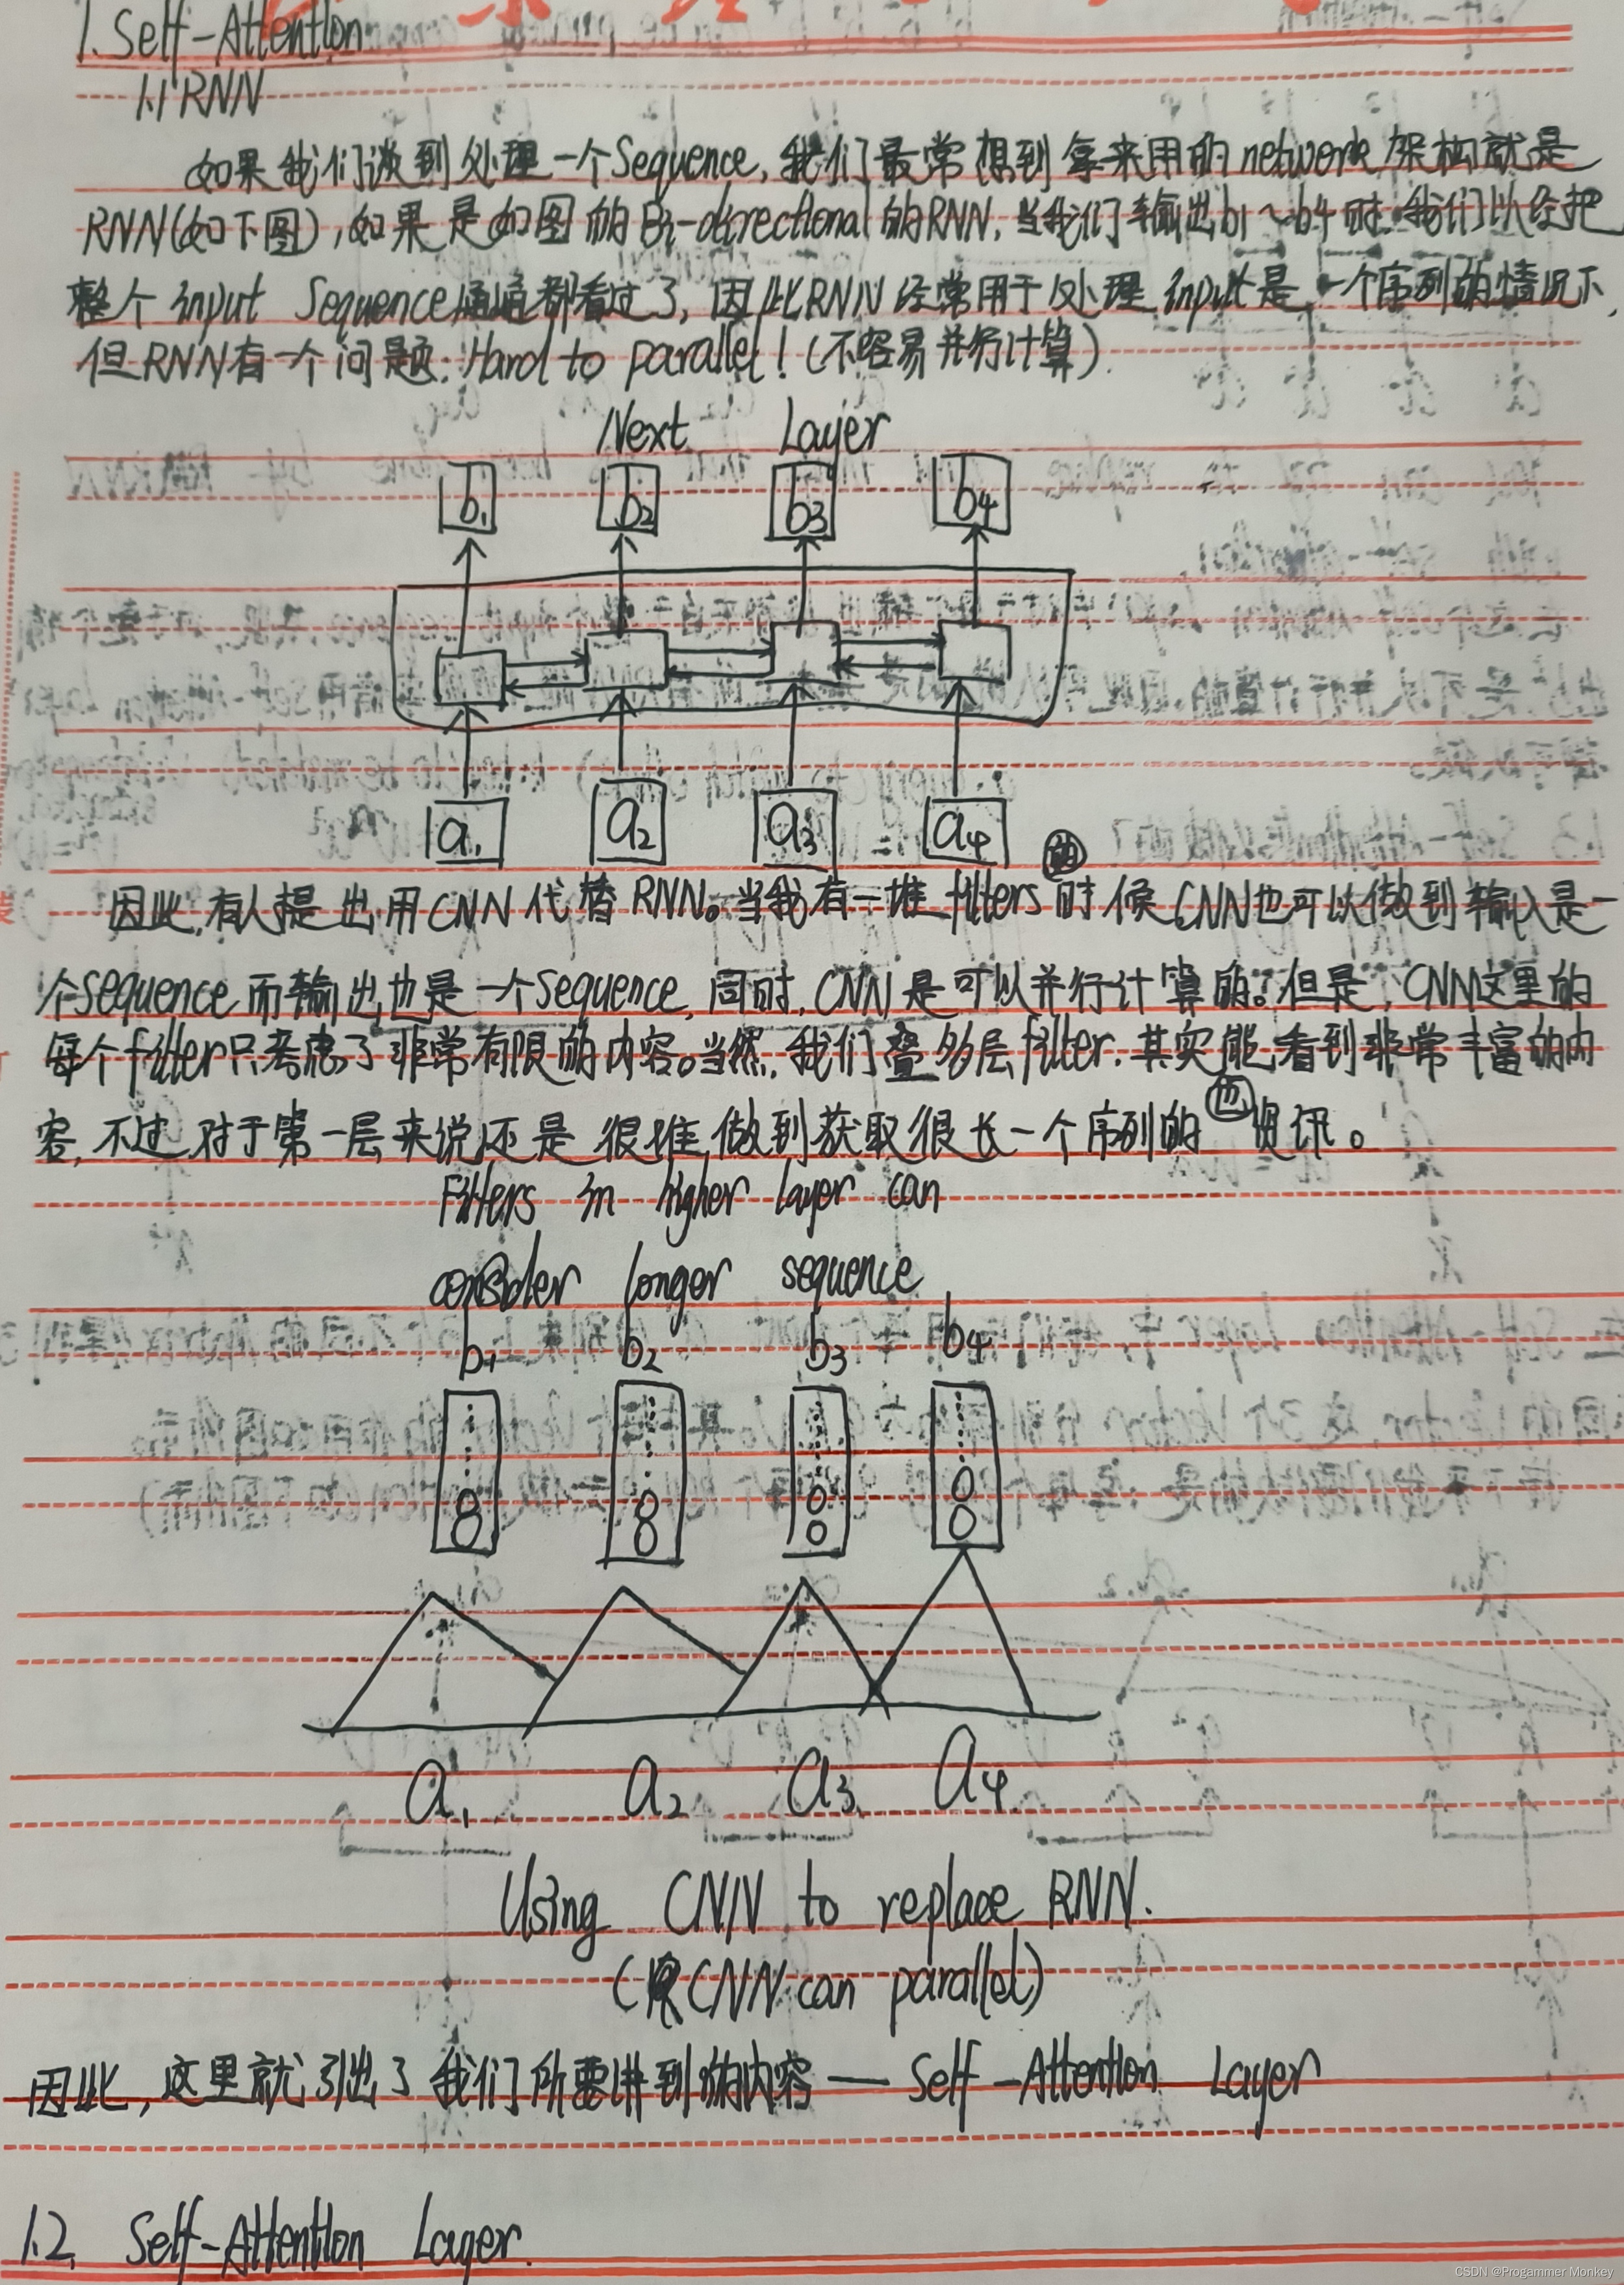 1. Self-Attention
1.1 RNN
如果我们谈到处理一个Sequence,我们最常想到拿来用的network架构就是
RNN(如下图),如果是如图的Bi-directional的RNN,当我们输出b1~b4时,我们以经把
整个input Sequence通通都看过了,因此RNN经常用于处理input是一个序列的情况下,
但RNN有一个问题:Hard to parallel!(不容易并行计算)
Next Layer
b1 b2 b3 b4
a1 a2 a3 a4
的
因此,有人提出用CNN代替RNN。当我有一堆filters时候CNN也可以做到输入是一
个sequence而输出也是一个sequence,同时,CNN是可以并行计算的。但是,CNN这里的
每个filter只考虑了非常有限的内容。当然,我们叠多层filter,其实能看到非常丰富的内
容,不过,对于第一层来说还是很难做到获取很长一个序列的资讯。
Filters in higher layer can
consider longer sequence
b1 b2 b3 b4
a1 a2 a3 a4
Using CNN to replace RNN.
(CNN can parallel)
因此,这里就引出了我们所要讲到的内容——Self-Attention Layer
1.2 Self-Attention Layer.
CSDN @Progammer Monkey